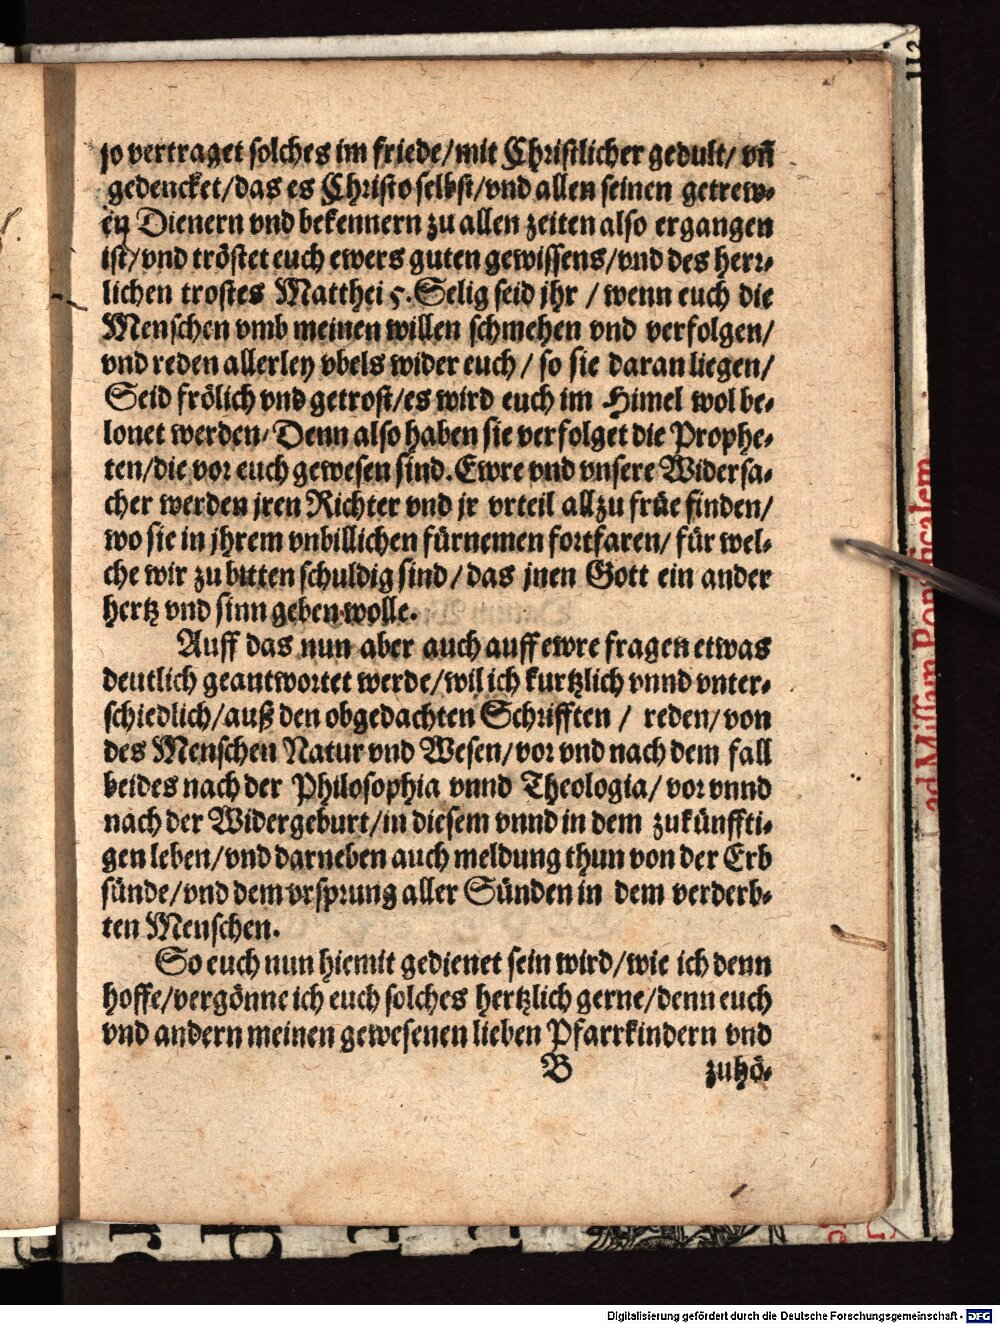 jo vertraget solches im friede/mit Christlicher gedult/ vñ
gedencket/das es Christo selbst/vnd allen seinen getrew⸗
en Dienern vnd bekennern zu allen zeiten also ergangen
ist/vnd tröstet euch ewers guten gewissens/vnd des herr⸗
lichen trostes Matthei 5. Selig seid jhr / wenn euch die
Menschen vmb meinen willen schmehen vnd verfolgen/
vnd reden allerley vbels wider euch / so sie daran liegen/
Seid frölich vnd getrost/es wird euch im Himel wol be⸗
lonet werden/ Denn also haben sie verfolget die Prophe⸗
ten/die vor euch gewesen sind. Ewre vnd vnsere Widersa⸗
cher werden jren Richter vnd jr vrteil allzu früe finden/
wo sie in jhrem vnbillichen fürnemen fortfaren/ für wel⸗
che wir zu bitten schuldig sind / das jnen Gott ein ander
hertz vnd sinn geben wolle.
Auff das nun aber auch auff ewre fragen etwas
deutlich geantwortet werde/wil ich kurtzlich vnnd vnter⸗
schiedlich/auß den obgedachten Schrifften / reden/von
des Menschen Natur vnd Wesen/vor vnd nach dem fall
beides nach der Philosophia vnnd Theologia/ vor vnnd
nach der Widergeburt/in diesem vnnd in dem zukünffti⸗
gen leben/vnd darneben auch meldung thun von der Erb
sünde/vnd dem vrsprung aller Sünden in dem verderb⸗
ten Menschen.
So euch nun hiemit gedienet sein wird/wie ich denn
hoffe/vergönne ich euch solches hertzlich gerne/denn euch
vnd andern meinen gewesenen lieben Pfarrkindern vnd
B zuhö⸗
112
ad Missam Pontificalem
Digitalisierung gefördert durch die Deutsche Forschungsgemeinschaft - DFG